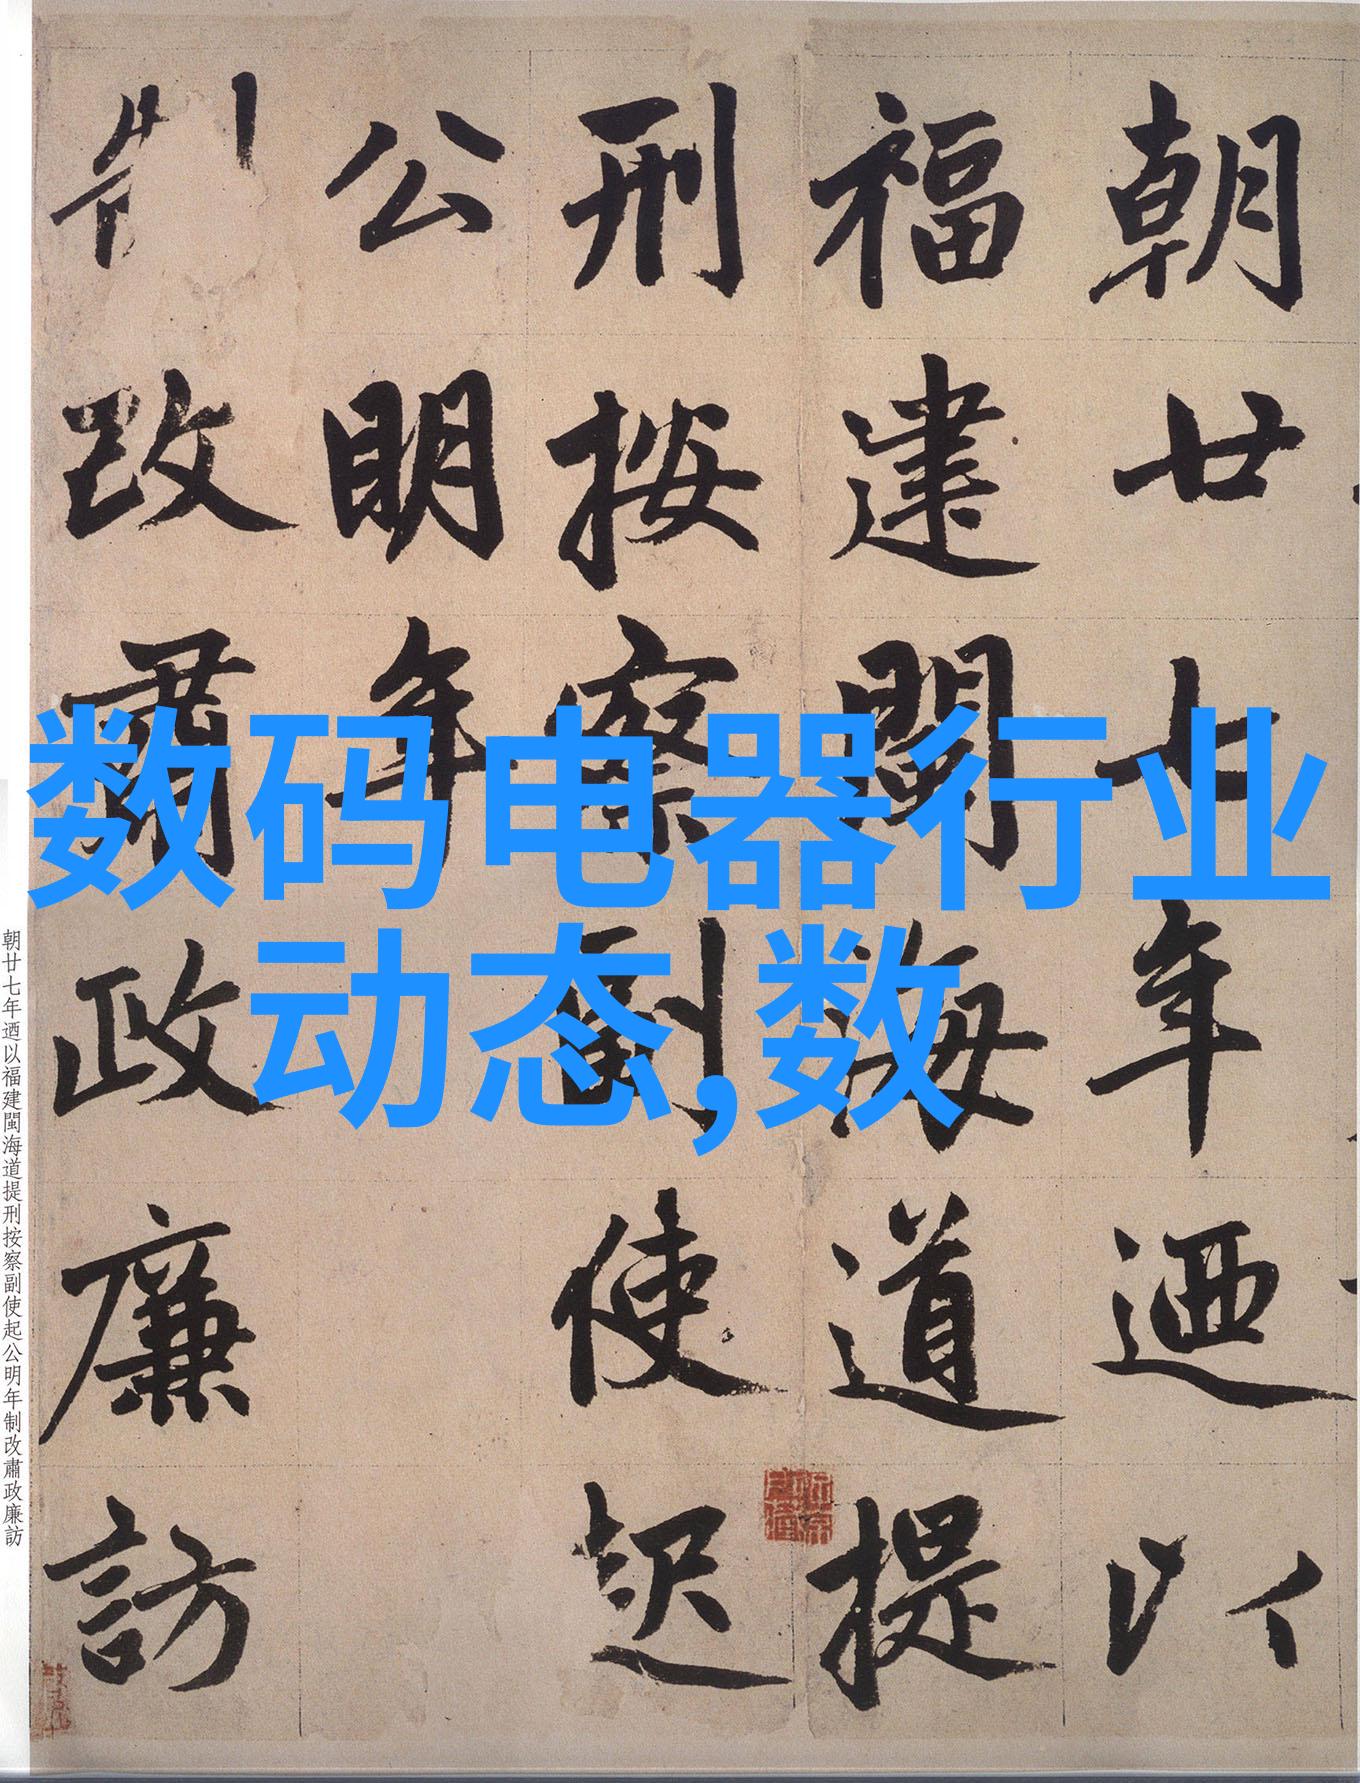 朝廿七年迺以
福建閩海道提
刑按察副使起
公明年
制改肅政廉訪
数码电器行业
动态,数
朝廿七年迺以福建閩海道提刑按察副使起公明年制改肅政廉訪